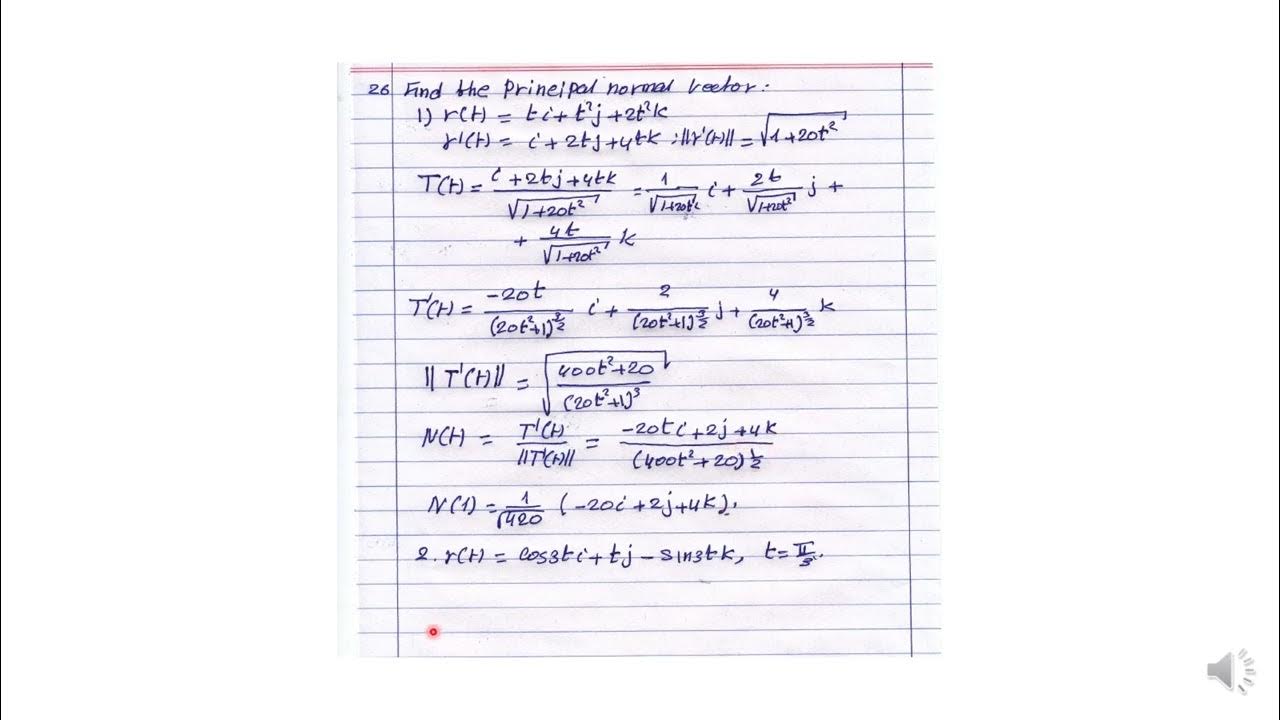 26 Find the principal normal vector:
1) r(t) = ti + t²j + 2t²k
r'(t) = i + 2tj + 4tk ; ||r'(t)|| = √(1+20t²)
T(t) = (i + 2tj + 4tk)/√(1+20t²) = 1/√(1+20t²) i + 2t/√(1+20t²) j +
+ 4t/√(1+20t²) k
T'(t) = -20t/(20t²+1)^(3/2) i + 2/(20t²+1)^(3/2) j + 4/(20t²+1)^(3/2) k
||T'(t)|| = √((400t²+20)/(20t²+1)³)
N(t) = T'(t)/||T'(t)|| = (-20ti + 2j + 4k)/(400t²+20)^(1/2)
N(1) = 1/√420 (-20i + 2j + 4k).
2. r(t) = cos3ti + tj - sin3tk, t = π/3.